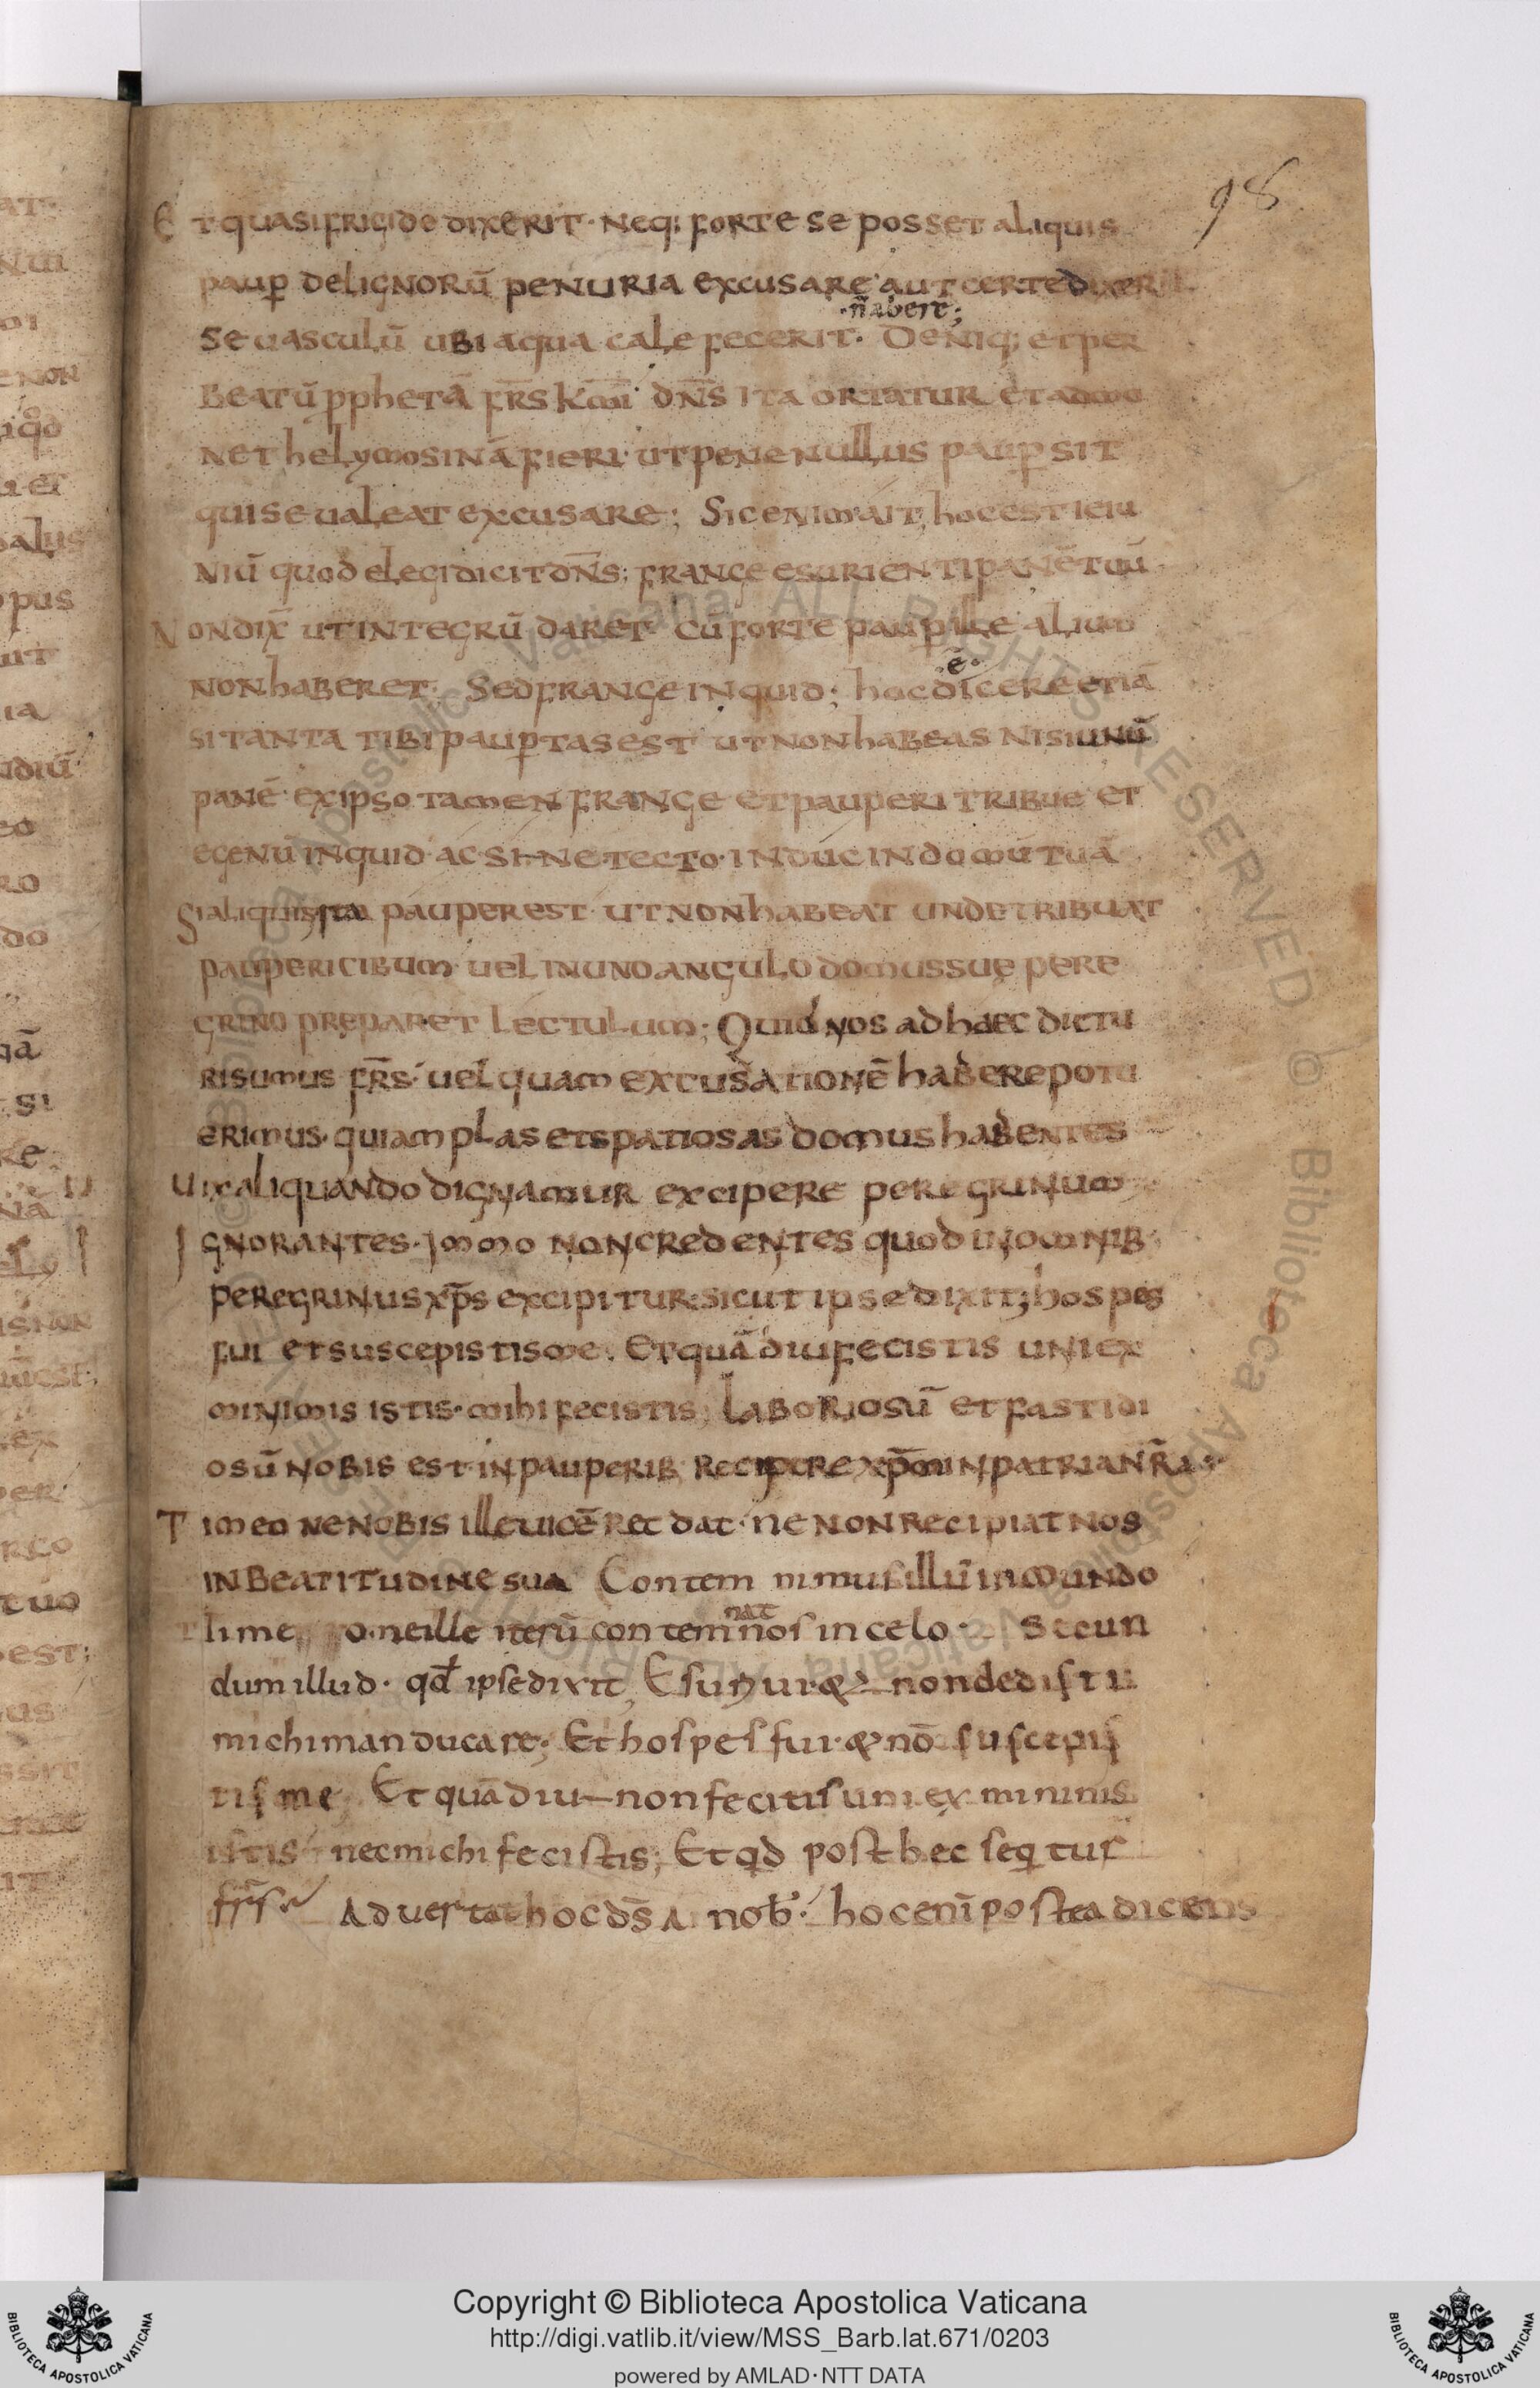 98
Et quasi frigide dixerit· neq; forte se posset aliquis
paup̱ delignorū penuria excusare· aut certe dixerit
·n̄ aberet;
se uasculū ubi aqua calefecerit· Deniq; et per
beatū pphetā fr̄s km̄i dn̄s ita ortatur et admo
net helymosinā fieri· ut pene nullus paup̱ sit
qui se ualeat excusare; Sic enim ait, hoc est ieiu
niū quod elegi dicit dn̄s; frange esurienti panē tuū·
Non dix̄ ut integrū daret· cū forte paup̱ ille alium
·ē·
non haberet· Sed frange inquid; hoc dicere etiā
si tanta tibi paup̱tas est ut non habeas nisi unū
panē· ex ipso tamen frange et pauperi tribue et
egenū inquid ac sine tecto· induc in domū tuā
Si aliquis ita pauper est ut non habeat unde tribuat
pauperi cibum· uel in uno angulo domus suę pere
grino pręparet lectulum; Quid nos ad haec dictu
ri sumus fr̄s· uel quam excusationē habere potu
erimus· qui amplas et spatiosas domus habentes
uix aliquando dignamur excipere peregrinum
Ignorantes· immo non credentes quod in omnib·
peregrinus xp̄s excipitur· sicut ipse dixit; hospes
fui et suscepistis me· Et quā diu fecistis uni ex
minimis istis· mihi fecistis; Laboriosū et fastidi
osū nobis est· in pauperib; recipere xp̄m in patria nr̄a·
Timeo ne nobis ille uicē reddat· ne non recipiat nos
in beatitudine sua Contemnimus illū in mundo
nat
Timeo· ne ille iterū contemnos in celo· Secun
dum illud· qđ ipse dixit, Esuriui· & non dedisti
michi manducare; Et hospes fui· & nō suscepis
tis me; Et quā diu non fecitis uni ex minimis
istis· nec michi fecistis; Et qđ post hec seq̄tur
fr̄s· Aduertat hoc ds̄ a nob̄· hoc enī postea dicens
Copyright © Biblioteca Apostolica Vaticana
http://digi.vatlib.it/view/MSS_Barb.lat.671/0203
powered by AMLAD·NTT DATA